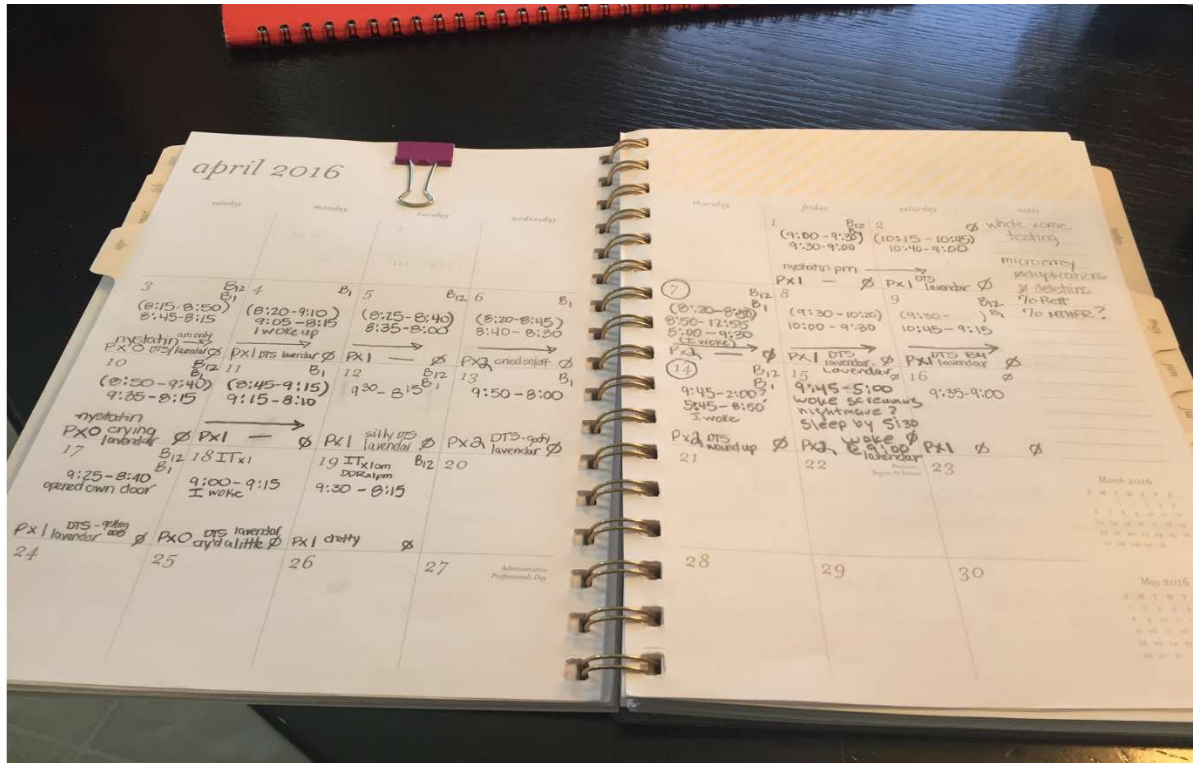 april 2016
sunday monday tuesday wednesday
3 B12
B1
(8:15-8:50)
8:45-8:15
nystatin am only
PX0 DTS/lavendar Ø
4 B1
(8:20-9:10)
9:05-8:15
I woke up
PX1 DTS lavendar Ø
5 B12
(8:25-8:40)
8:35-8:00
PX1 — Ø
6 B1
(8:20-8:45)
8:40-8:30
PX2 Ø
10 B12
B1
(8:50-9:40)
9:35-8:15
nystatin
PX0 crying
lavendar Ø
11 B1
(8:45-9:15)
9:15-8:10
PX1 — Ø
12 B12
B1
9:30-8:15
PX1 silly DTS
lavendar Ø
13 B1
9:50-8:00
PX2 DTS-
lavendar Ø
17 B12
B1
9:25-8:40
opened own door
PX1 DTS-
lavendar Ø
18 ITX1
9:00-9:15
I woke
PX0 DTS lavendar
cry'd a little Ø
19 ITX1am B12
9:30-8:15
PX1 chatty Ø
20
24
25
26
27 Administrative
Professionals Day
thursday friday saturday notes
1 B12
(9:00-9:35)
9:30-9:00
nystatin prn
PX1 — Ø
2 Ø
(10:15-10:45)
10:40-9:00
PX1 DTS
lavendar Ø
whole xome
testing
microarray
Ø duplications
Ø deletions
7 B12
B1
8:50-12:55
5:00-9:30
(I woke)
PX2 — Ø
8
(9:30-10:20)
10:00-9:30
PX1 DTS
lavendar Ø
9 B12
B1
(9:30- )
10:45-9:15
PX1 DTS
lavendar Ø
14 B12
B1
9:45-2:00?
5:45-8:50
I woke
PX2 DTS
wound up Ø
15 Lavendar
9:45-5:00
woke screaming
nightmare?
sleep by 5:30
woke
PX2 @ 9:00
lavendar Ø
16 Ø
9:35-9:00
PX1 Ø
21
22 Passover
Begins At Sundown
23
28
29
30
March 2016
S M T W T F S
May 2016
S M T W T F S